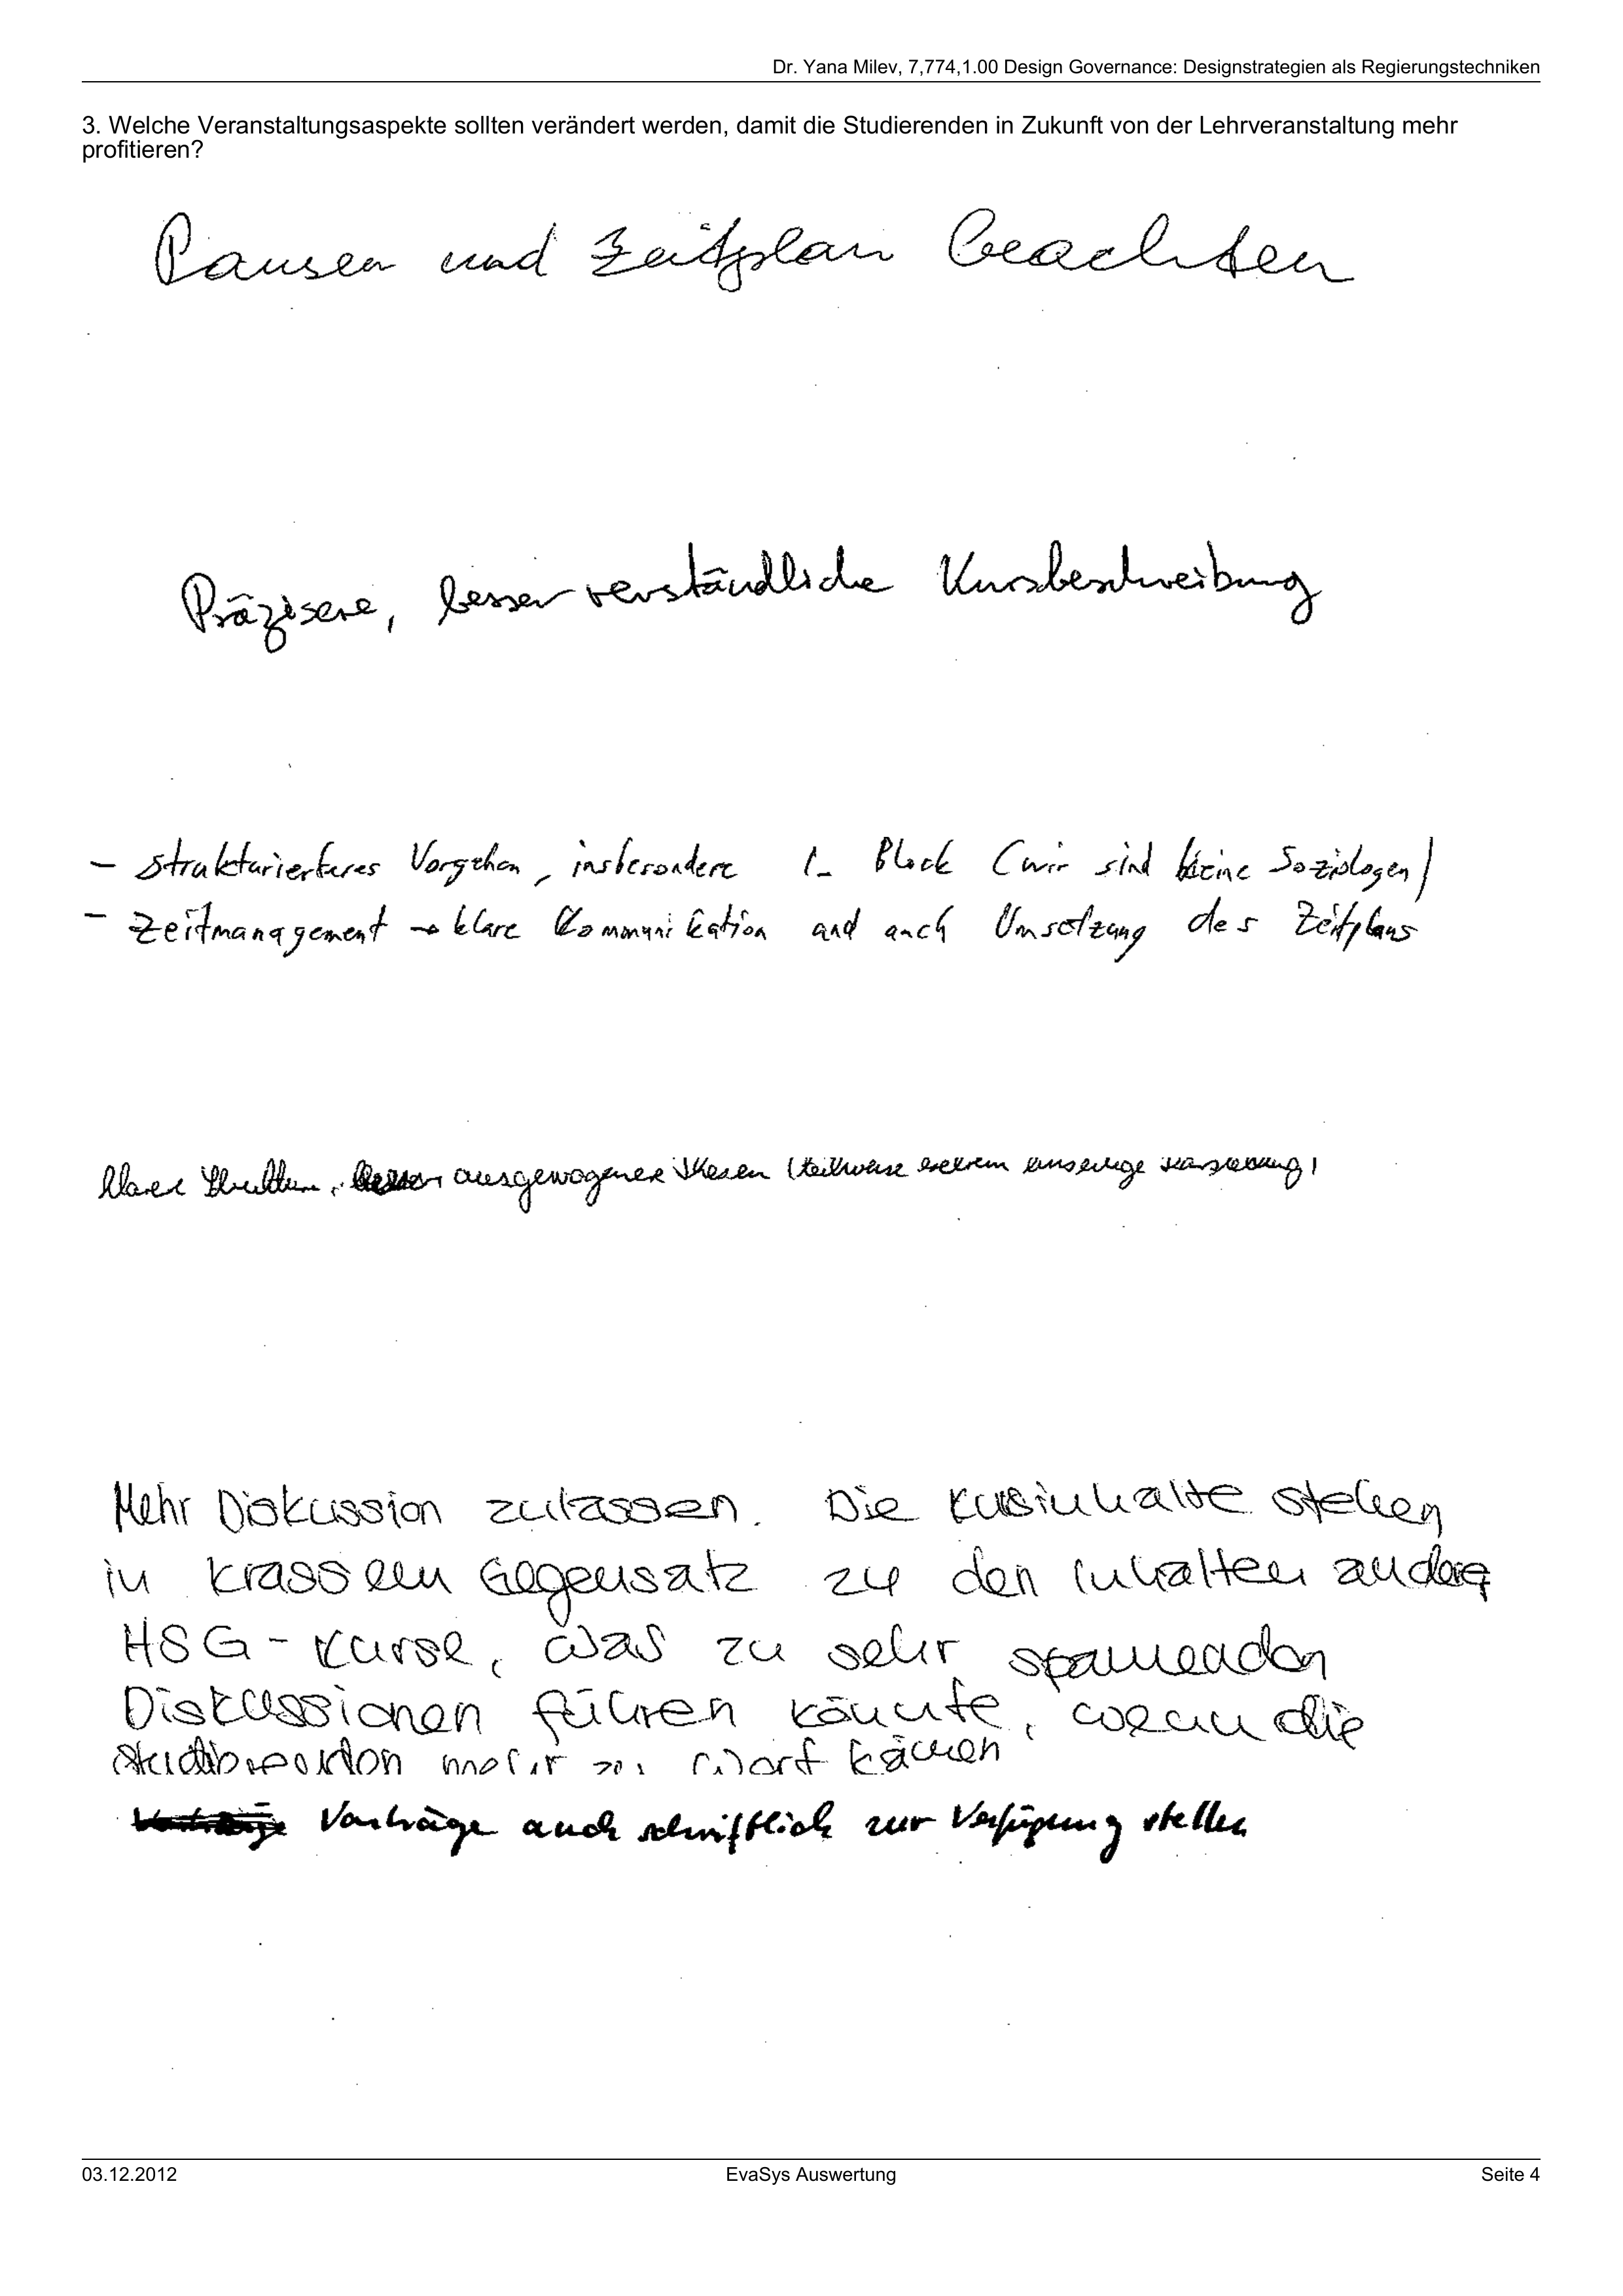 Dr. Yana Milev, 7,774,1.00 Design Governance: Designstrategien als Regierungstechniken
3. Welche Veranstaltungsaspekte sollten verändert werden, damit die Studierenden in Zukunft von der Lehrveranstaltung mehr
profitieren?
Pausen und Zeitplan beachten
Präzisere, besser verständliche Kursbeschreibung
- strukturierteres Vorgehen, insbesondere 1. Block (wir sind keine Soziologen)
- Zeitmanagement → klare Kommunikation und auch Umsetzung des Zeitplans
ausgewogenere Thesen (teilweise extrem einseitige
Mehr Diskussion zulassen. Die Kursinhalte stehen
in krassem Gegensatz zu den Inhalten anderer
HSG-Kurse, was zu sehr spannenden
Diskussionen führen könnte, wenn die
mehr zu Wort kämen
Vorträge auch schriftlich zur Verfügung stellen
03.12.2012
EvaSys Auswertung
Seite 4